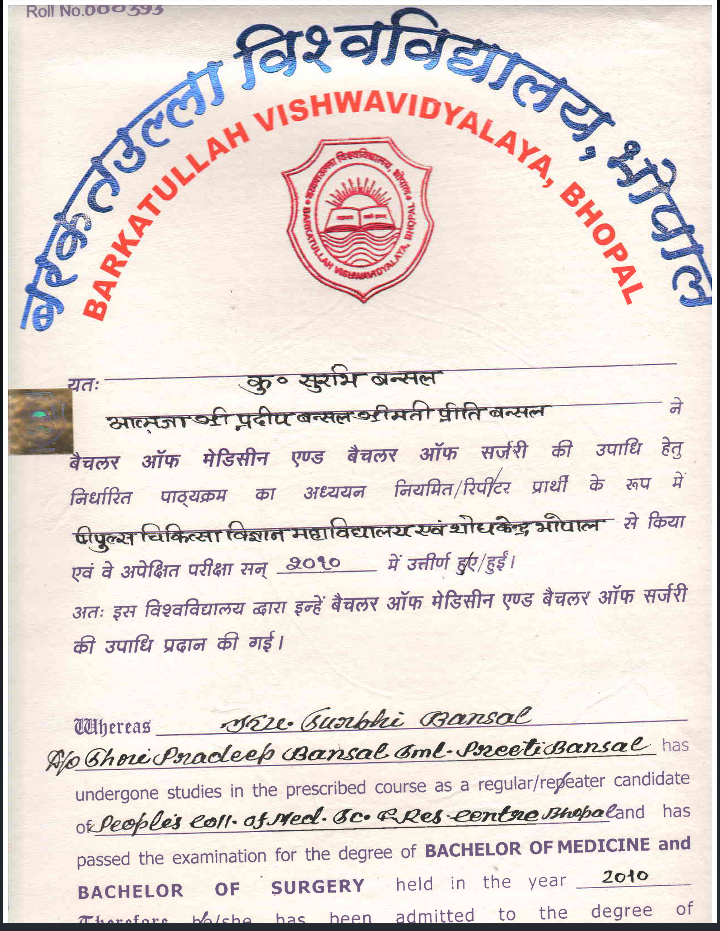 Roll No.000393
बरकतउल्ला विश्वविद्यालय, भोपाल
BARKATULLAH VISHWAVIDYALAYA, BHOPAL
बरकतउल्ला विश्वविद्यालय, भोपाल
BARKATULLAH VISHWAVIDYALAYA, BHOPAL
यतः कु० सुरभि बन्सल
आत्मजा श्री प्रदीप बन्सल श्रीमती प्रीति बन्सल ने
बैचलर ऑफ मेडिसीन एण्ड बैचलर ऑफ सर्जरी की उपाधि हेतु
निर्धारित पाठ्यक्रम का अध्ययन नियमित/रिपीटर प्रार्थी के रूप में
पीपुल्स चिकित्सा विज्ञान महाविद्यालय एवं शोधकेन्द्र भोपाल से किया
एवं वे अपेक्षित परीक्षा सन् २०१० में उत्तीर्ण हुए/हुईं।
अतः इस विश्वविद्यालय द्वारा इन्हें बैचलर ऑफ मेडिसीन एण्ड बैचलर ऑफ सर्जरी
की उपाधि प्रदान की गई।
Whereas Ku. Surbhi Bansal
D/o Shri Pradeep Bansal Smt. Preeti Bansal has
undergone studies in the prescribed course as a regular/repeater candidate
of People's Coll. of Med. Sc. & Res. centre Bhopal and has
passed the examination for the degree of BACHELOR OF MEDICINE and
BACHELOR OF SURGERY held in the year 2010
Therefore he/she has been admitted to the degree of